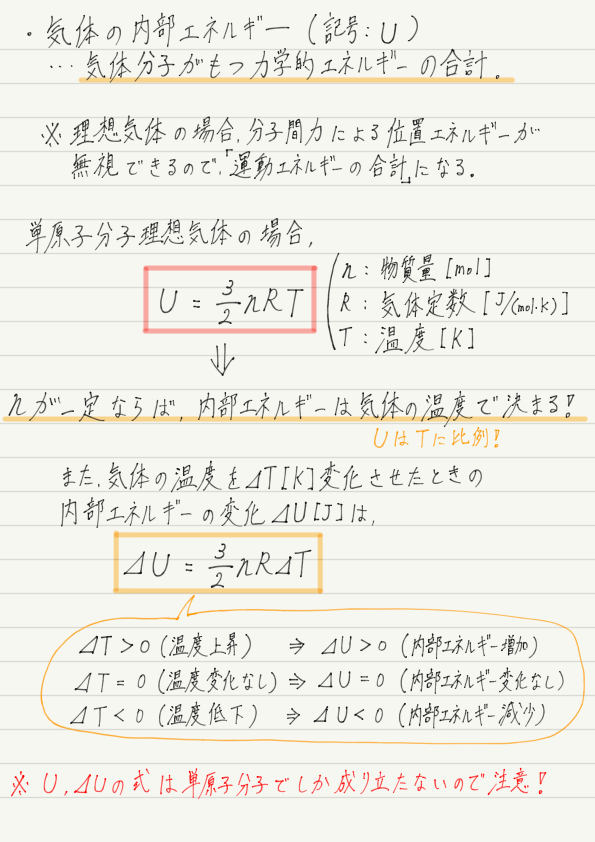 ・気体の内部エネルギー（記号：U）
…気体分子がもつ力学的エネルギーの合計。
※理想気体の場合、分子間力による位置エネルギーが
無視できるので、「運動エネルギーの合計」になる。
単原子分子理想気体の場合，
U = 3/2 nRT
n：物質量[mol]
R：気体定数[J/(mol・K)]
T：温度[K]
⇓
nが一定ならば，内部エネルギーは気体の温度で決まる！
UはTに比例！
また，気体の温度をΔT[K]変化させたときの
内部エネルギーの変化ΔU[J]は，
ΔU = 3/2 nRΔT
ΔT>0（温度上昇）⇒ ΔU>0（内部エネルギー増加）
ΔT=0（温度変化なし）⇒ ΔU=0（内部エネルギー変化なし）
ΔT<0（温度低下）⇒ ΔU<0（内部エネルギー減少）
※U，ΔUの式は単原子分子でしか成り立たないので注意！